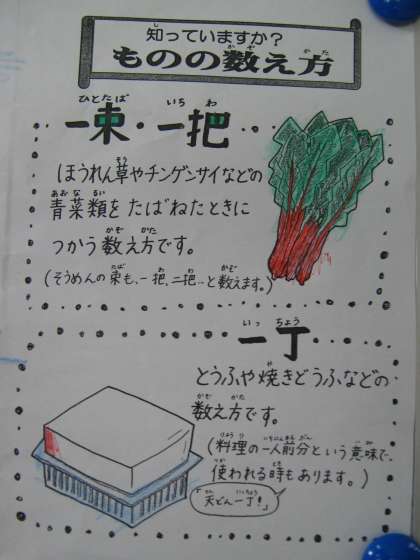 知っていますか？
ものの数え方
一束・一把
ほうれん草やチンゲンサイなどの
青菜類を たばねたときに
つかう数え方です。
(そうめんの束も、一把、二把…と数えます。)
一丁
とうふや焼きどうふなどの
数え方です。
(料理の一人前分という意味で、
使われる時もあります。)
「天どん一丁!」